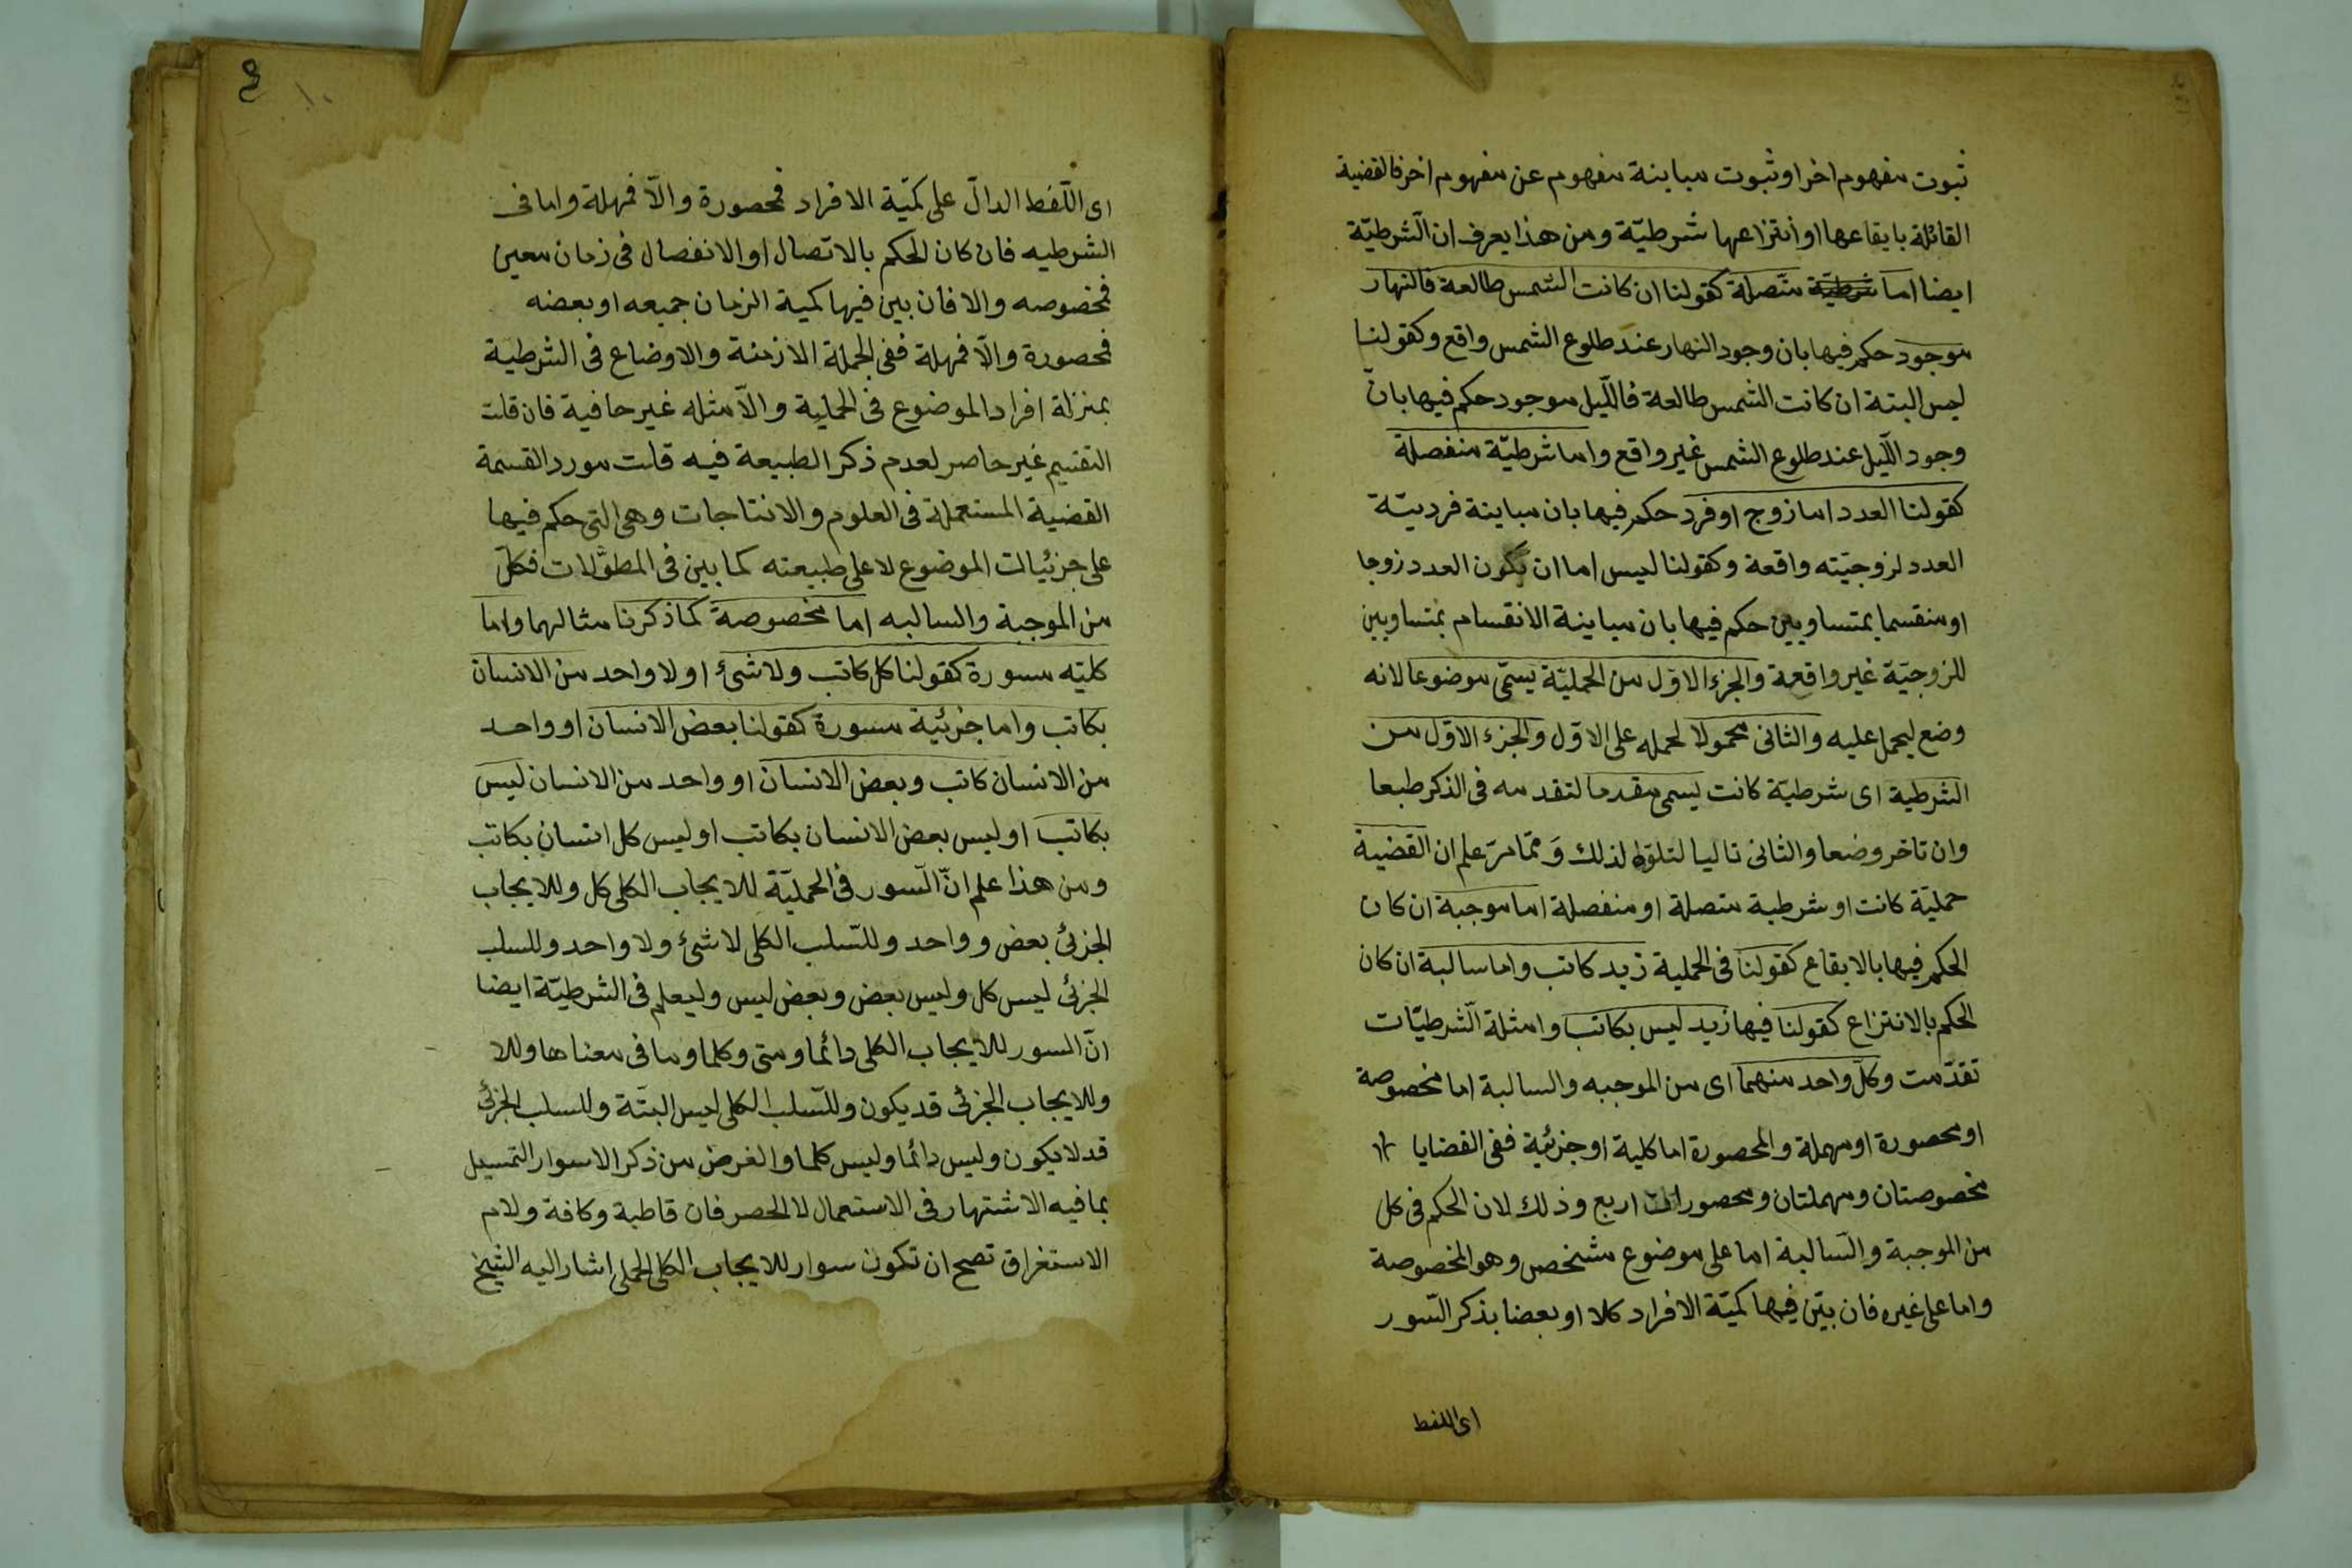 ثبوت مفهوم اخر او ثبوت مباينة مفهوم عن مفهوم اخر فالقضية
القائلة بايقاعها او انتزاعها شرطيّة ومن هذا يعرف ان الشرطيّة
ايضا اما شرطيّة متّصلة كقولنا ان كانت الشمس طالعة فالنهار
موجود حكم فيها بان وجود النهار عند طلوع الشمس واقع وكقولنا
ليس البتة ان كانت الشمس طالعة فاللّيل موجود حكم فيها بانّ
وجود اللّيل عند طلوع الشمس غير واقع واما شرطيّة منفصلة
كقولنا العدد اما زوج او فرد حكم فيها بان مباينة فرديّة
العدد لزوجيّته واقعة وكقولنا ليس اما ان يكون العدد زوجا
او منقسما بمتساويين حكم فيها بان مباينة الانقسام بمتساويين
للزوجيّة غير واقعة والجزء الاوّل من الحمليّة يسمّى موضوعا لانه
وضع ليحمل عليه والثانى محمولا لحمله على الاوّل والجزء الاوّل من
الشرطية اى شرطيّة كانت يسمى مقدما لتقدمه فى الذكر طبعا
وان تاخر وضعا والثانى تاليا لتلوّه لذلك وَممّا مرّ علم ان القضية
حمليّة كانت او شرطية متصلة او منفصلة اما موجبة ان كان
الحكم فيها بالايقاع كقولنا فى الحملية زيد كاتب واما سالبة ان كان
الحكم بالانتزاع كقولنا فيها زيد ليس بكاتب وامثلة الشرطيّات
تقدّمت وكلّ واحد منهما اى من الموجبه والسالبة اما مخصوصة
او محصورة او مهملة والمحصورة اما كلية او جزئية ففى القضايا
مخصوصتان ومهملتان ومحصورات اربع وذلك لان الحكم فى كل
من الموجبة والسّالبة اما على موضوع مشخص وهو المخصوصة
واما على غيره فان بيّن فيها كميّة الافراد كلا او بعضا بذكر السّور
اى اللفط
١٠
اى اللّفظ الدالّ على كمّية الافراد فمحصورة والاّ فمهلة واما فى
الشرطيه فان كان الحكم بالاتصال او الانفصال فى زمان معين
فمخصوصه والا فان بين فيها كمية الزمان جميعه او بعضه
فمحصورة والاّ فمهلة ففى الجملة الازمنة والاوضاع فى الشرطية
بمنزلة افراد الموضوع فى الحملية والاّمثله غير خافية فان قلت
التقسيم غير حاصر لعدم ذكر الطبيعة فيه قلت مورد القسمة
القضية المستعملة فى العلوم والانتاجات وهى التى حكم فيها
على جزئيات الموضوع لا على طبيعته كما بين فى المطوّلات فكلّ
من الموجبة والسالبه اما مخصوصة كما ذكرنا مثالهما واما
كليّه مسورة كقولنا كل كاتب ولا شئ او لا واحد من الانسان
بكاتب واما جزئيّة مسورة كقولنا بعض الانسان او واحد
من الانسان كاتب وبعض الانسان او واحد من الانسان ليس
بكاتب او ليس بعض الانسان بكاتب او ليس كل انسان بكاتب
ومن هذا علم انّ السّور فى الحمليّة للايجاب الكلى كل وللايجاب
الجزئ بعض وواحد وللسّلب الكلى لا شئ ولا واحد وللسلب
الجزئ ليس كل وليس بعض وبعض ليس وليعلم فى الشرطيّة ايضا
انّ السور للايجاب الكلى دائما ومتى وكلما وما فى معناها وللا
وللايجاب الجزئ قد يكون وللسّلب الكلى ليس البتّة وللسلب الجزئ
قد لا يكون وليس دائما وليس كلما والغرض من ذكر الاسوار التمسيل
بما فيه الاشتهار فى الاستعمال لا الحصر فان قاطبة وكافة ولام
الاستغراق تصح ان تكون سوار للايجاب الكلى الحملى اشار اليه الشيخ